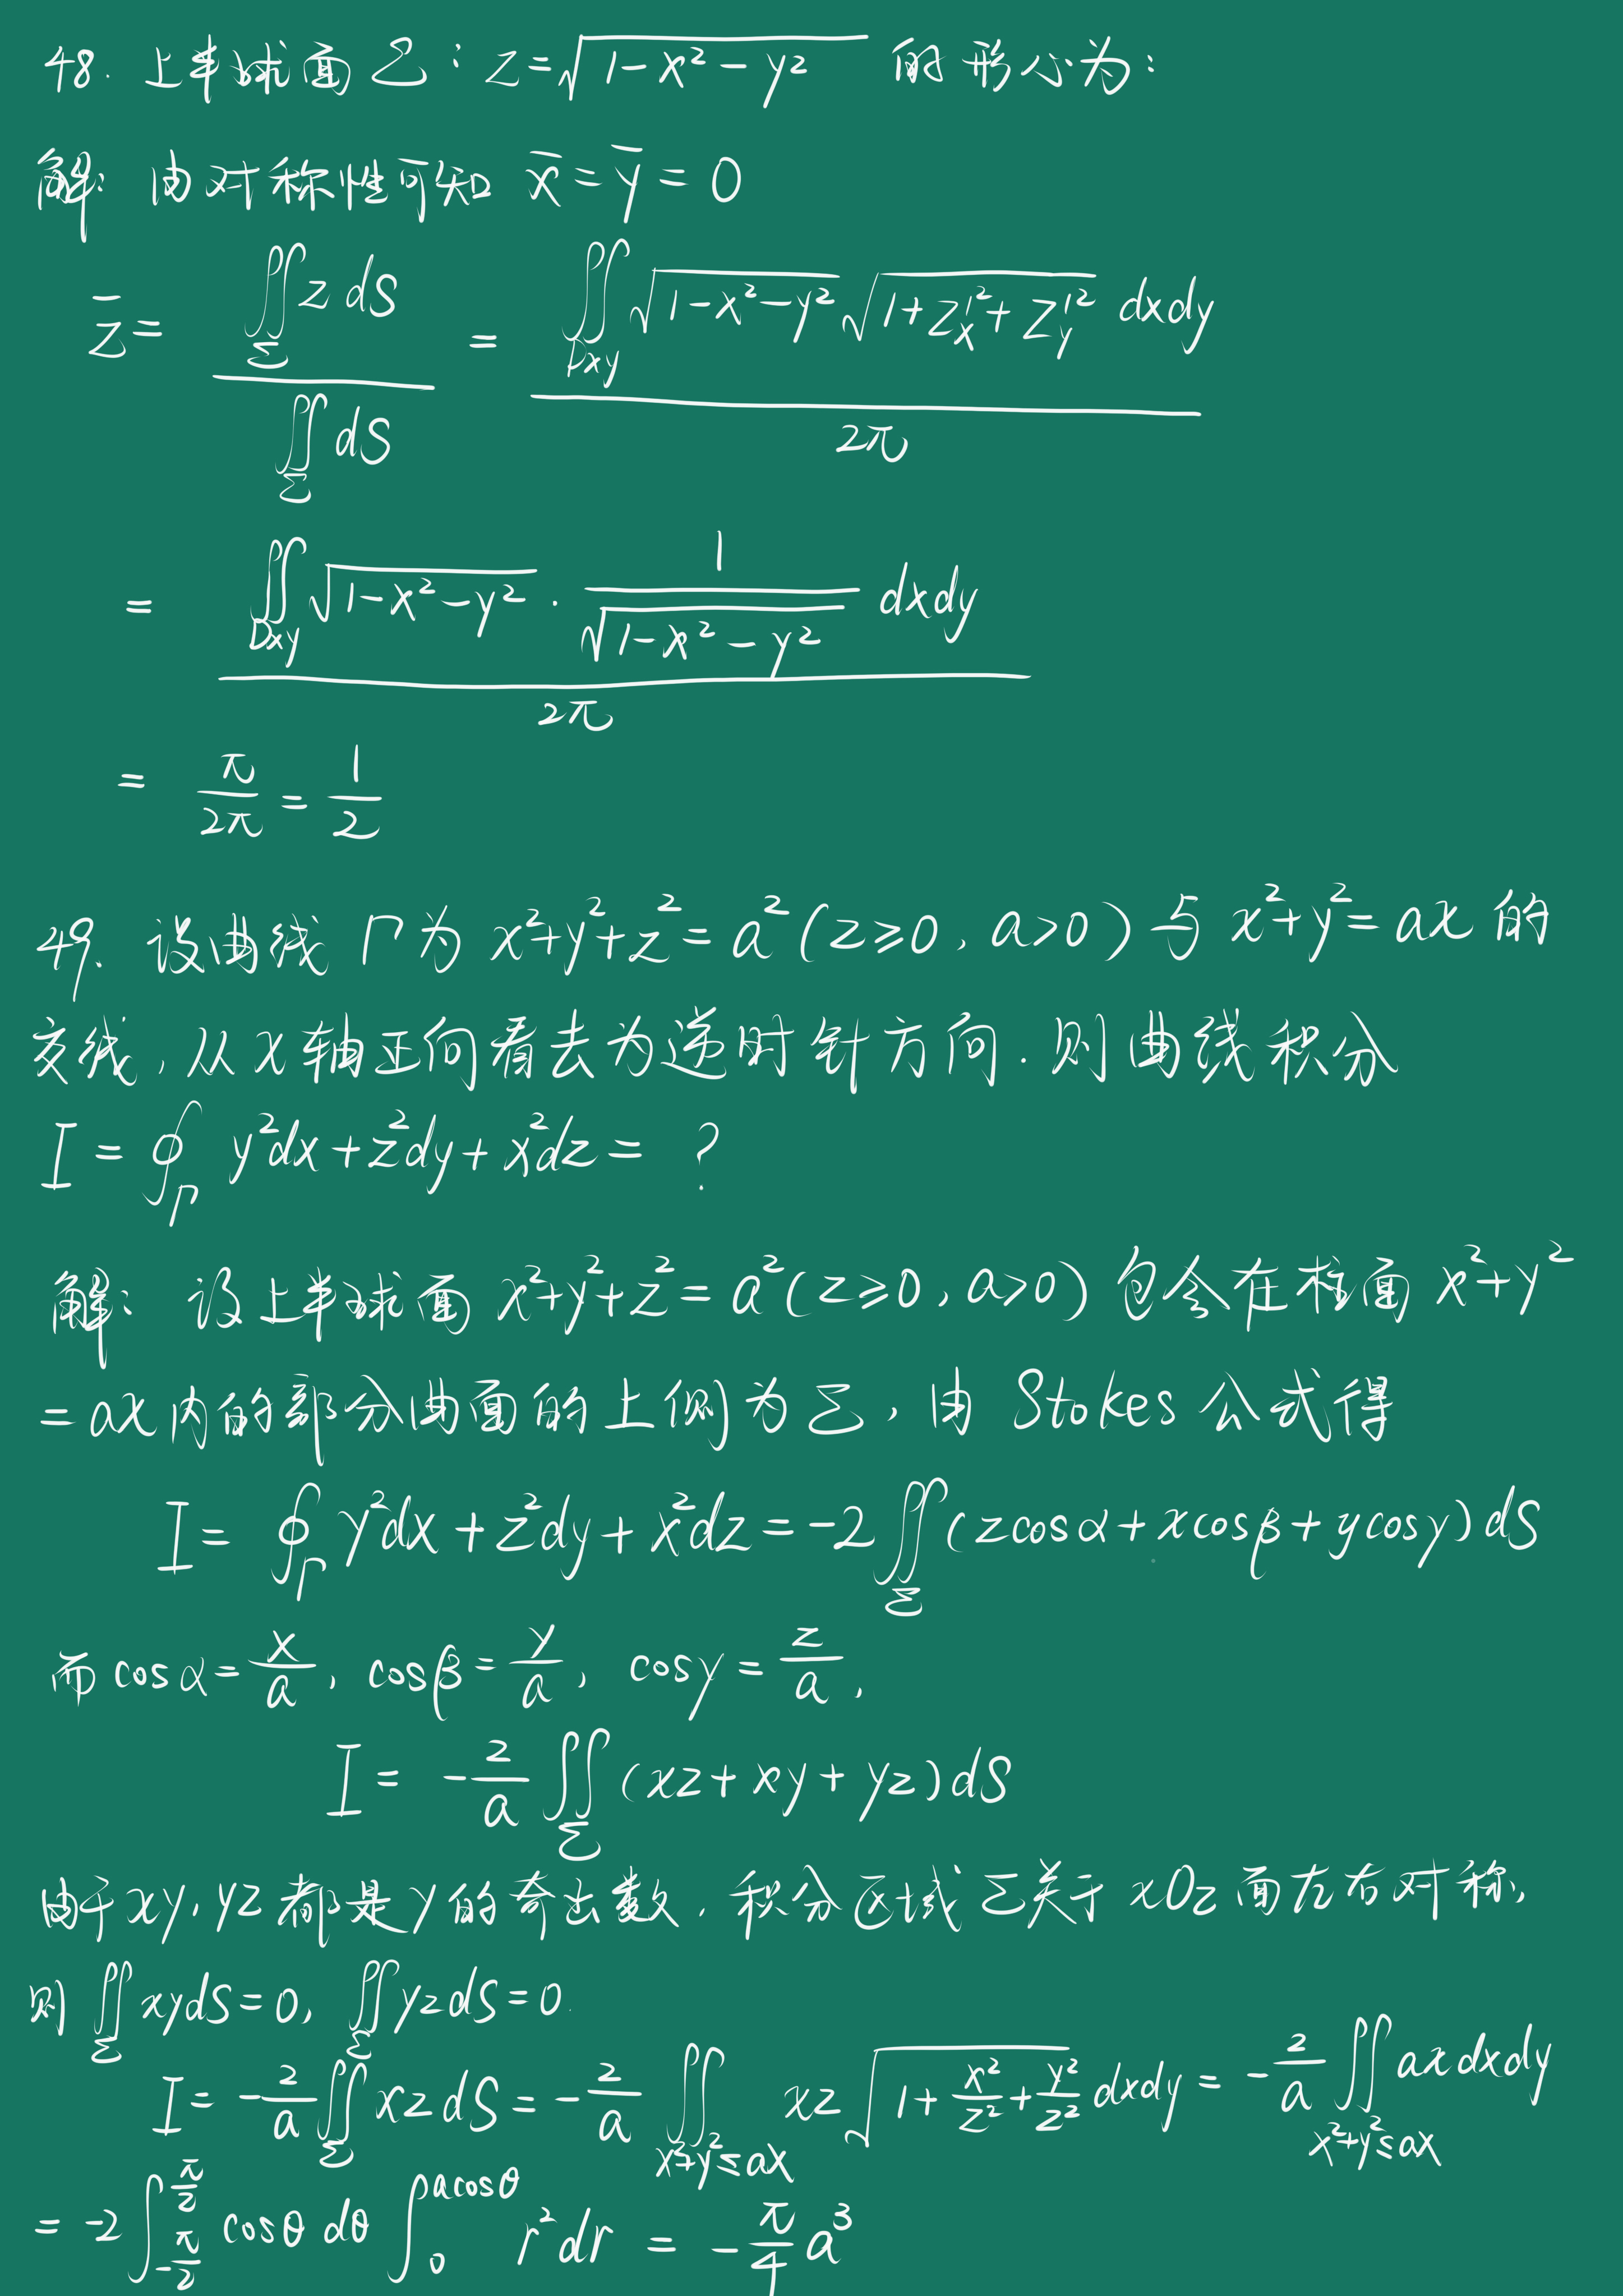 48. 上半球面 Σ: z=√(1-x²-y²) 的形心为:
解: 由对称性可知 x̄=ȳ=0
z̄ = ∬_Σ z dS / ∬_Σ dS = ∬_Dxy √(1-x²-y²) √(1+z'ₓ²+z'_y²) dxdy / 2π
= ∬_Dxy √(1-x²-y²) · 1/√(1-x²-y²) dxdy / 2π
= π/2π = 1/2
49. 设曲线 Γ为 x²+y²+z²=a²(z≥0, a>0)与 x²+y²=ax 的
交线, 从x轴正向看去为逆时针方向. 则曲线积分
I = ∮_Γ y²dx+z²dy+x²dz= ?
解: 设上半球面 x²+y²+z²=a²(z≥0, a>0)包含在柱面 x²+y²
=ax内的部分曲面的上侧为Σ, 由 Stokes 公式得
I= ∮_Γ y²dx+z²dy+x²dz=-2∬_Σ(zcosα+xcosβ+ycosγ)dS
而 cosα=x/a, cosβ=y/a, cosγ=z/a,
I = -2/a ∬_Σ (xz+xy+yz)dS
由于xy, yz都是y的奇函数, 积分区域Σ关于xOz面左右对称,
则 ∬_Σ xydS=0, ∬_Σ yzdS=0.
I= -2/a ∬_Σ xzdS = -2/a ∬_{x²+y²≤ax} xz√(1+x²/z²+y²/z²) dxdy = -2/a ∬_{x²+y²≤ax} axdxdy
= -2∫_{-π/2}^{π/2} cosθdθ ∫_0^{acosθ} r²dr = -π/4 a³